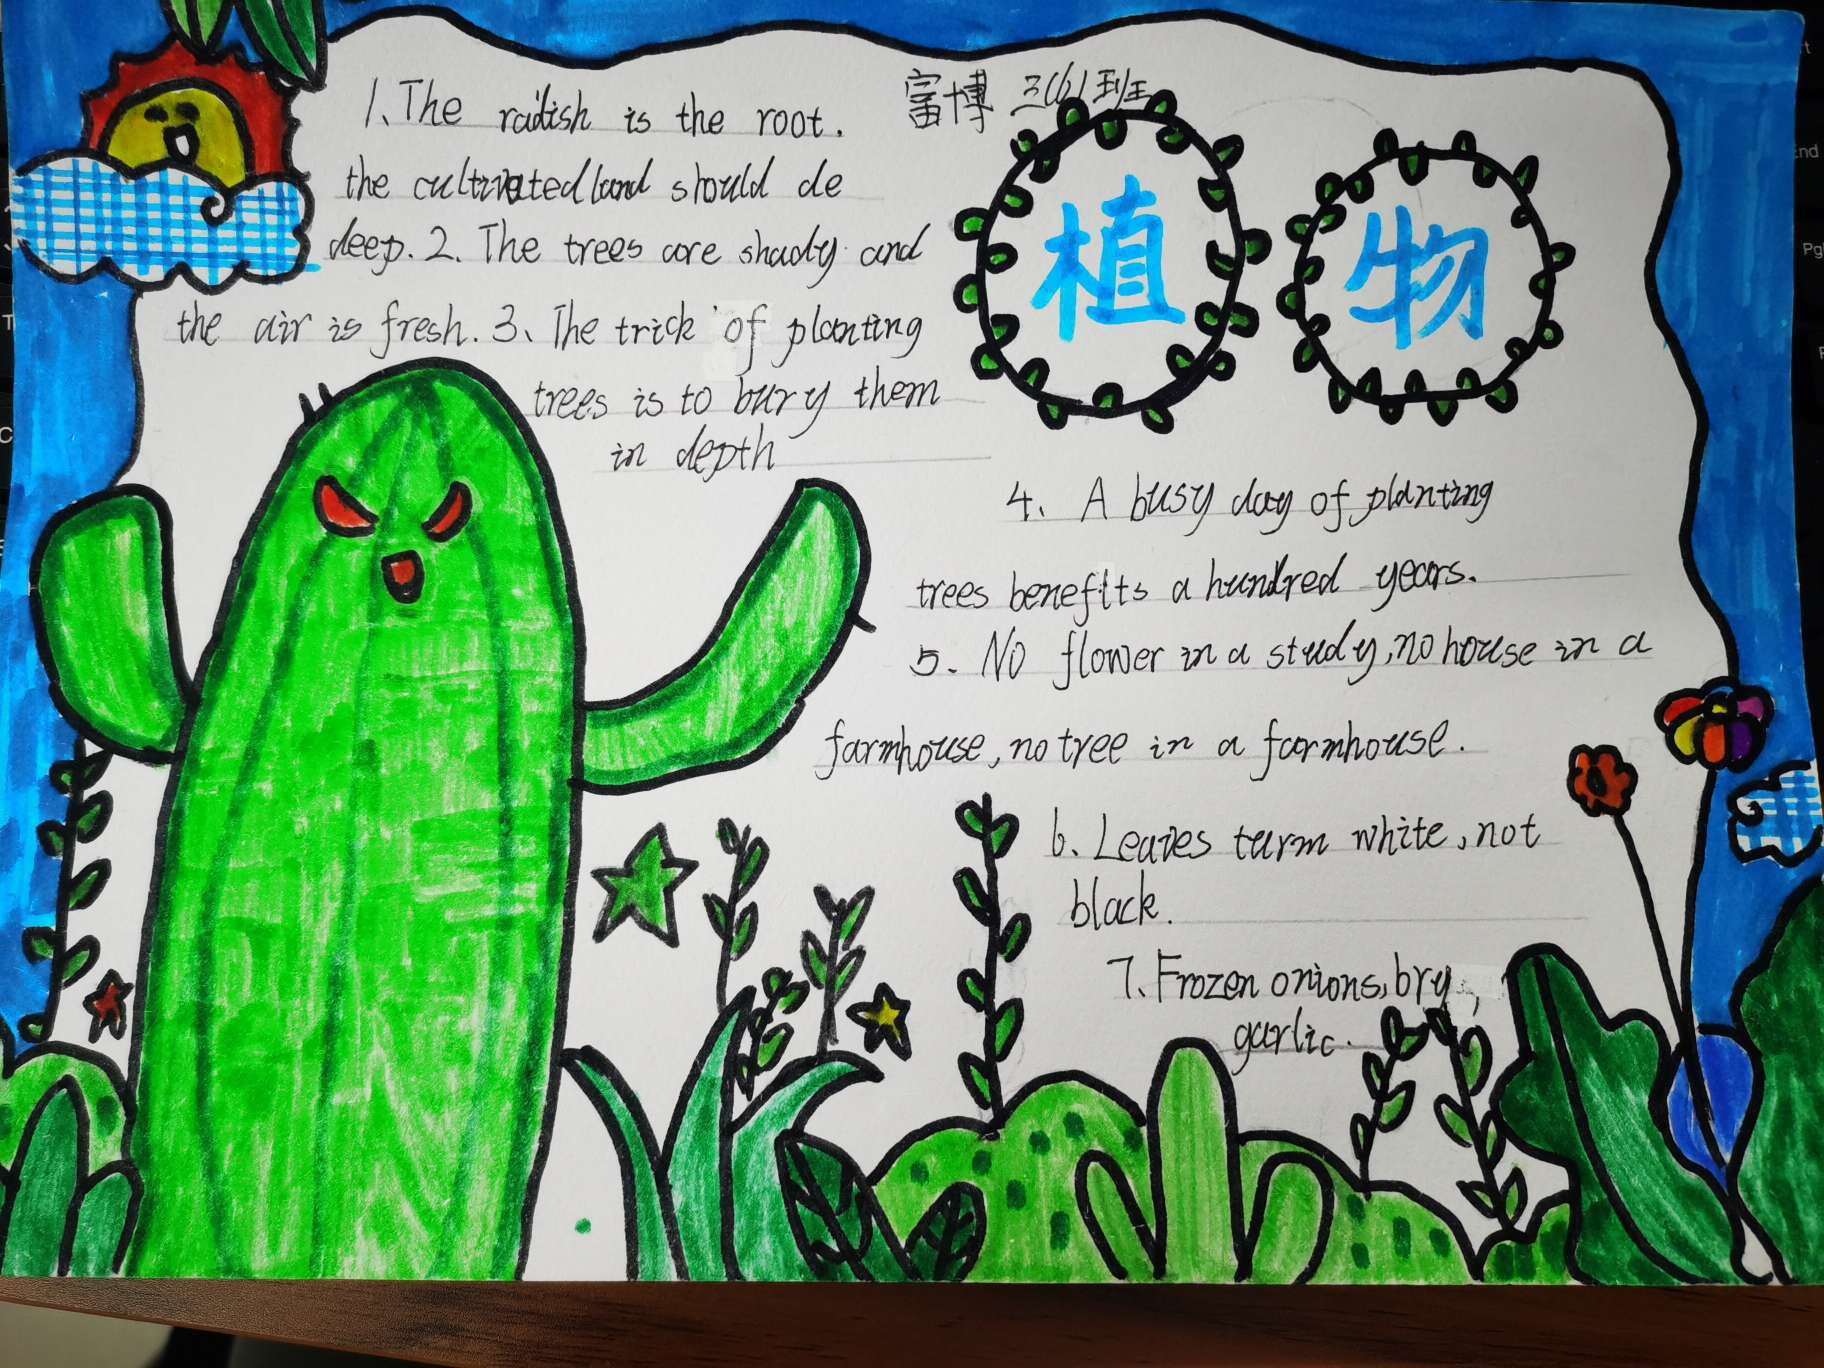 1、The radish is the root.
the cultivated land should de
deep. 2. The trees are shady and
the air is fresh. 3、The trick of planting
trees is to bury them
in depth
富博 三(6)班
植 物
4、 A busy day of planting
trees benefits a hundred years.
5. No flower in a study, no house in a
farmhouse, no tree in a farmhouse.
6、Leaves turm white, not
black.
7、Frozen onions, bry,
garlic.